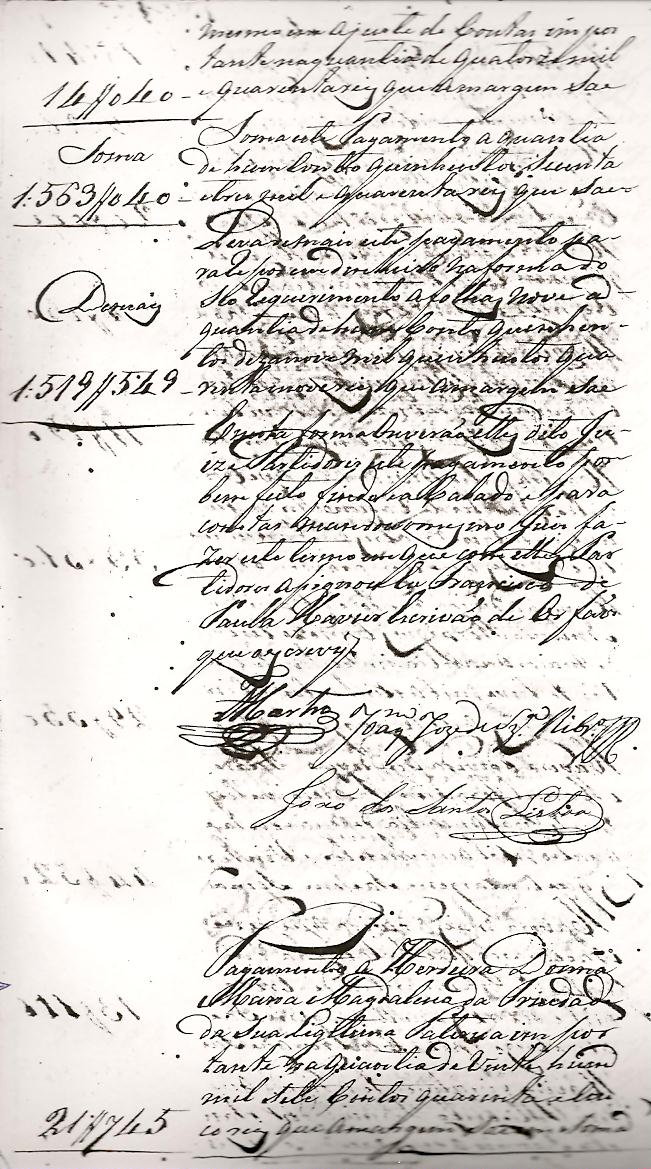 mesmo em ajuste de Contas impor
tante na quantia de quatorze mil
e quarenta reis que a margem Sae
14$040
Soma este Pagamento a quantia
de hum Conto quinhentos, Secenta
e tres mil e quarenta reis que Sae
Soma
1:563$040
Leva de mais este pagamento pa-
ra repor em dinheiro na forma do
Requerimento a folhas Nove a
quantia de hum Conto quinhen-
tos dezanove mil quinhentos qua-
renta nove reis que a margem Sae
Demais
1:519$549
E nesta forma ouverão elles dito Ju-
iz e Partidores este pagamento por
bem feito findo e acabado e para
constar mandou o mesmo Juiz fa-
zer este termo em que com elles Par
tidores asignou Eu Francisco de
Paula Xavier Escrivão de Orfãos
que o escrevy
Joaqm Joze de Sza Ribro
João dos Santos Lisboa
Pagamento a Herdeira Donna
Maria Magdalena da Piedade
da Sua Legitima Paterna impor
tante na quantia de Vinte hum
mil Sete Centos quarenta e sin
co reis que a margem
21$745